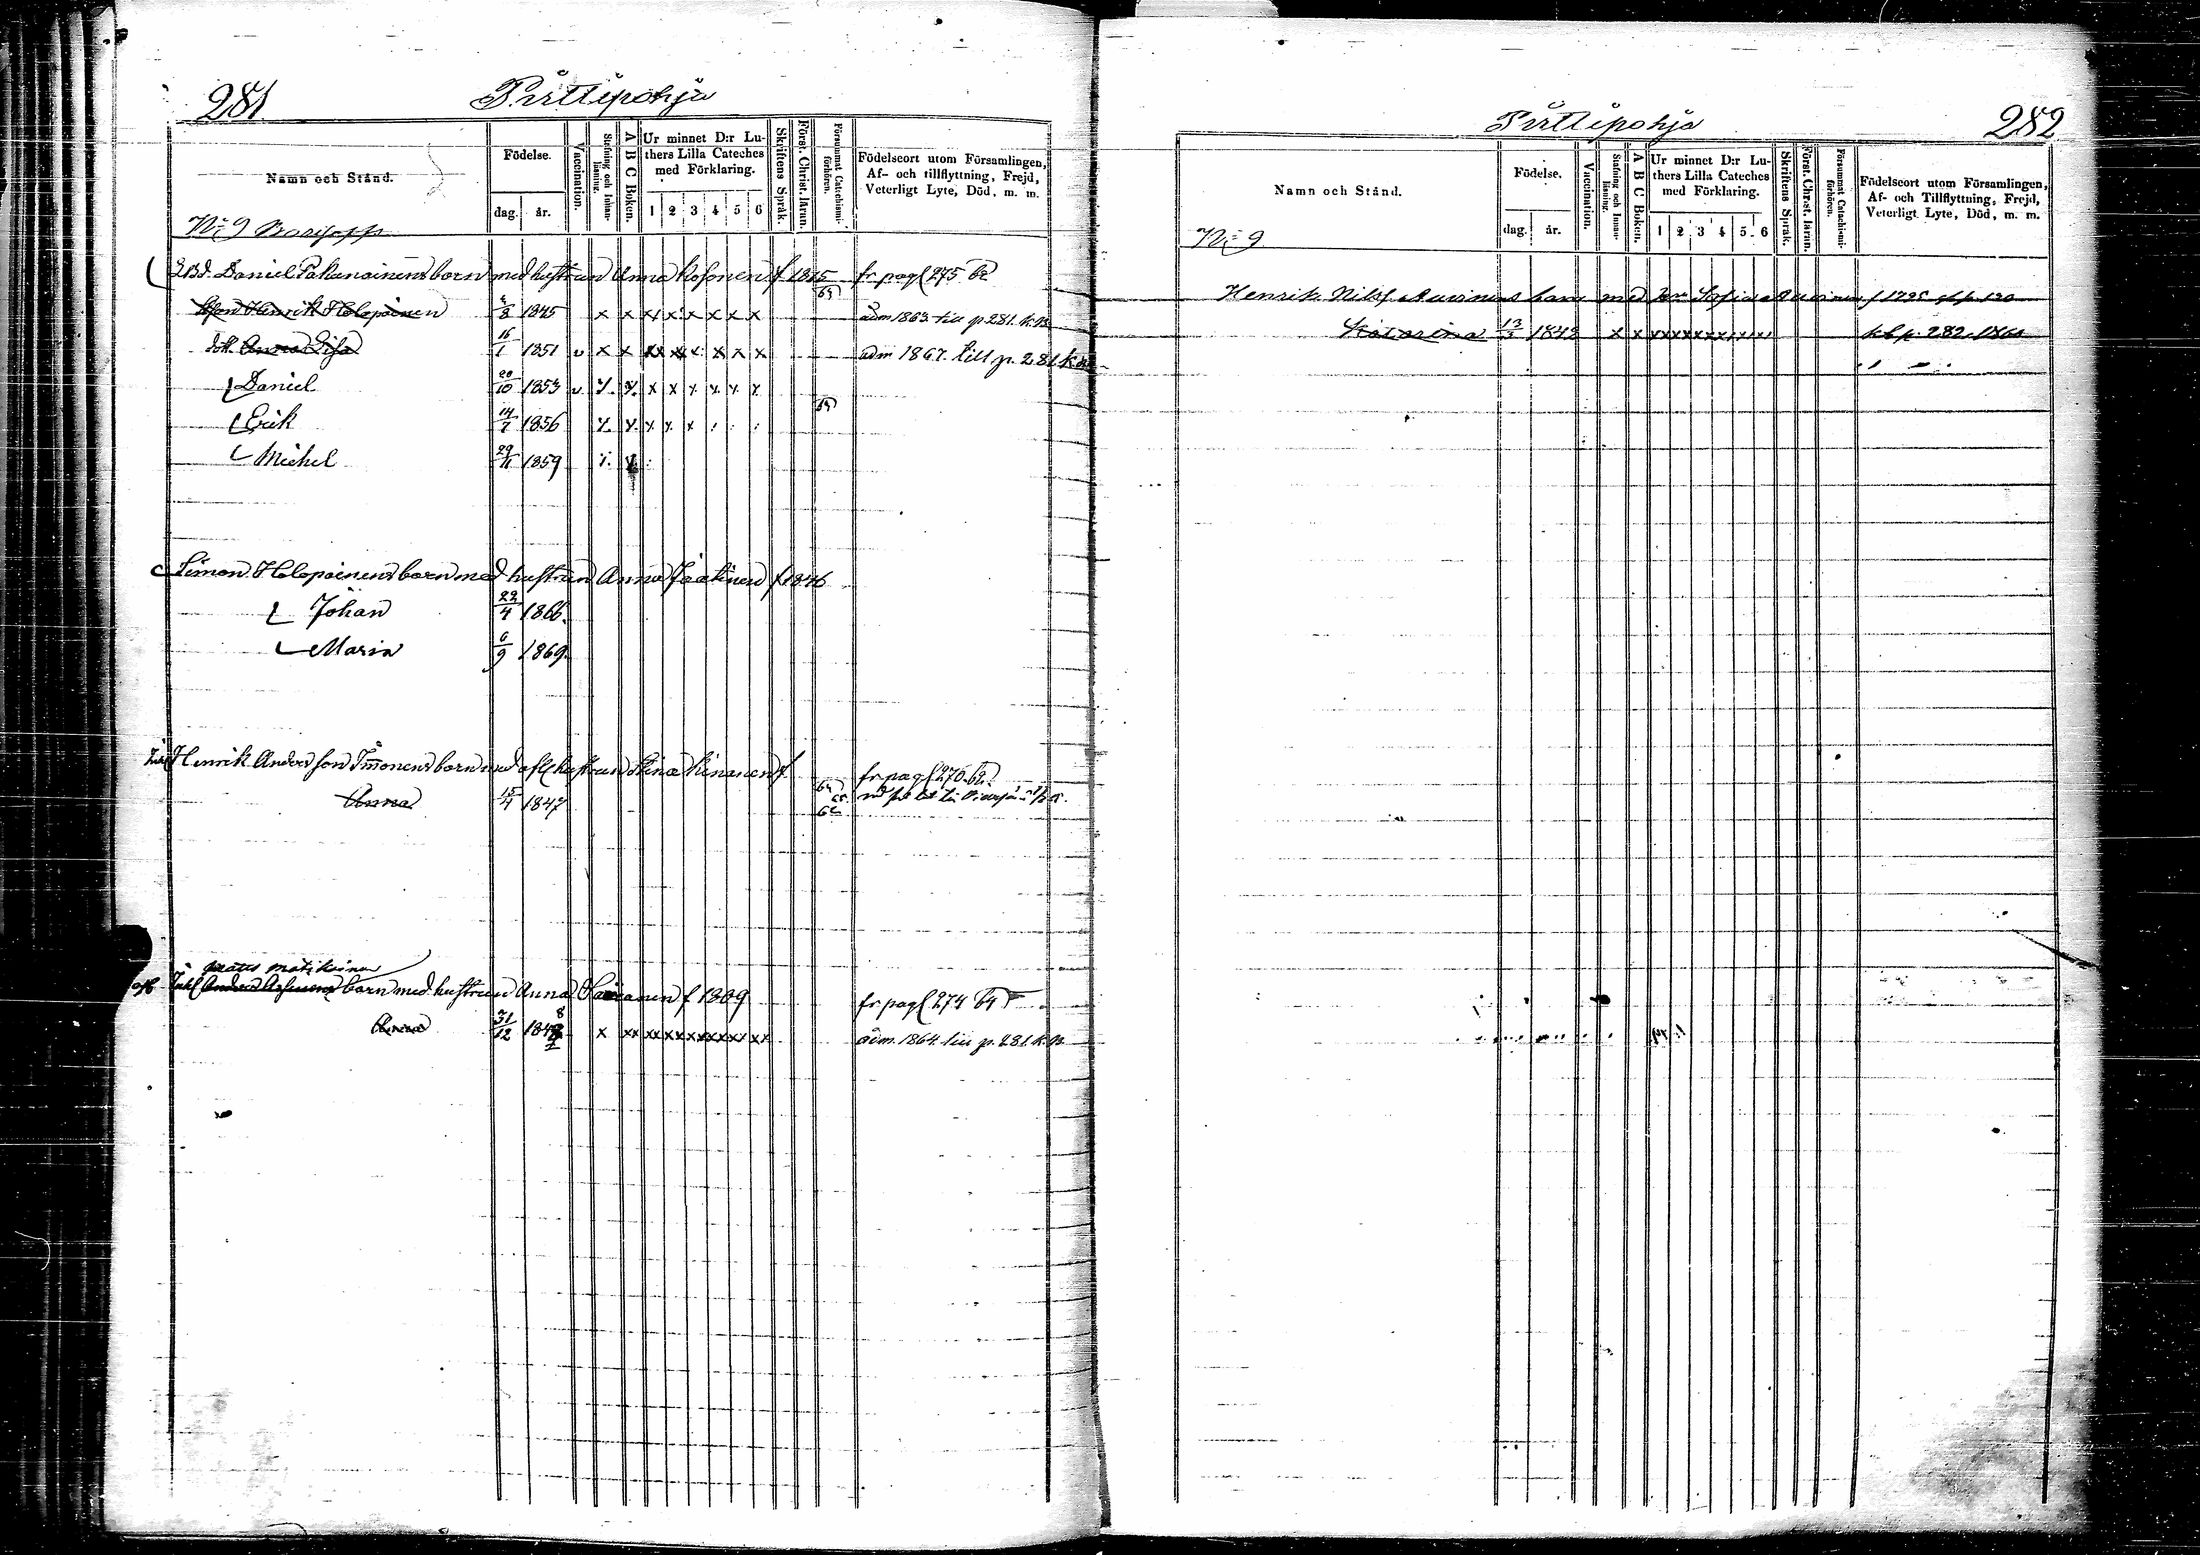 281
Pirttipohja
Namn och Stånd.
Födelse.
dag. år.
Vaccination.
Stafning och Innan-läsning.
A B C Boken.
Ur minnet D:r Lu-
thers Lilla Cateches
med Förklaring.
1 2 3 4 5 6
Skriftens Språk.
Först. Christ. läran.
Försummat Catechismi-förhören.
Födelseort utom Församlingen,
Af- och tillflyttning, Frejd,
Veterligt Lyte, Död, m. m.
N:o 9
Daniel Pakanainens barn med hustrun Anna Kosonen f 1815 fr pag 275
69
Henrik Holopainen 4/8 1845 x x x x x x x x adm 1863 till p 281. k.B
dott. Anna Lisa 16/1 1851 v x x x x x x x x adm 1867. till p. 281 k.B
Daniel 20/10 1853 v x x x x x x x x
69
Erik 14/7 1856 x x x x x
Michel 29/11 1859
Simon Holopainens barn med hustrun Anna Jaatinen f 1846
Johan 22/4 1866.
Maria 6/9 1869.
Inh Henrik Andersson Immonens barn med afl hustrun Stina Kinanen f fr pag 270
Anna 15/4 1847
Mats Matikainen
Inh Anders barn med hustrun Anna f 1809 fr pag 274
Anna 31/12 1848 x xx xx xx xx xx xx xx adm. 1864. till p. 281. k.B
Pirttipohja
282
Namn och Stånd.
Födelse.
dag. år.
Vaccination.
Stafning och Innan-läsning.
A B C Boken.
Ur minnet D:r Lu-
thers Lilla Cateches
med Förklaring.
1 2 3 4 5 6
Skriftens Språk.
Först. Christ. läran.
Försummat Catechismi-förhören.
Födelseort utom Församlingen,
Af- och Tillflyttning, Frejd,
Veterligt Lyte, Död, m. m.
N:o 9
Henrik Nilsf Auvinens barn med Sofia Auvinen
Katarina 13/3 1843 x x xx xx xx xx xx xx kb p. 282. 1860